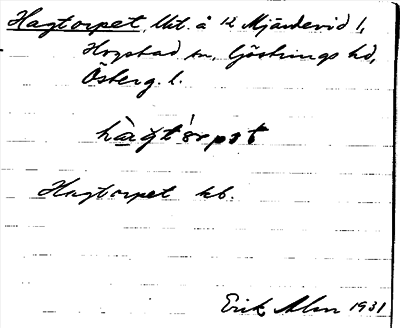 Hagtorpet, lht. å 12 Mjärdevid 1,
Hogstad sn, Göstrings hd,
Österg. l.
hàgtòrpət
Hagtorpet kb.
Erik Alm 1931